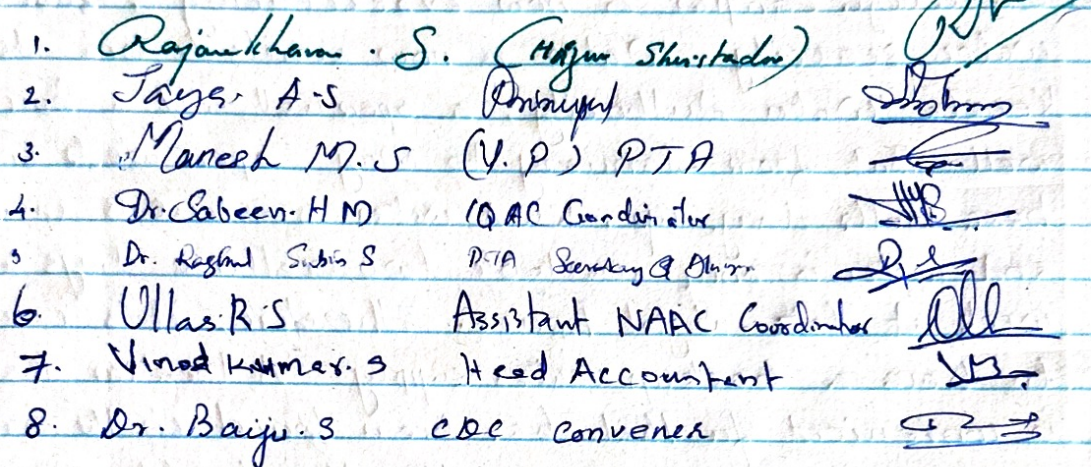 1. Rajasekharan . S. (Hazur Sheristadar)
2. Jaya. A-S Principal
3. Maneesh M.S (V.P) PTA
4. Dr. Sabeen. H M IQAC Cordinator
5 Dr. Raghul Subin S PTA Secretary &
6. Ullas. R. S Assistant NAAC Coordinator
7. Vinod Kumar. S Head Accountant
8. Dr. Baiju. S CDC Convener